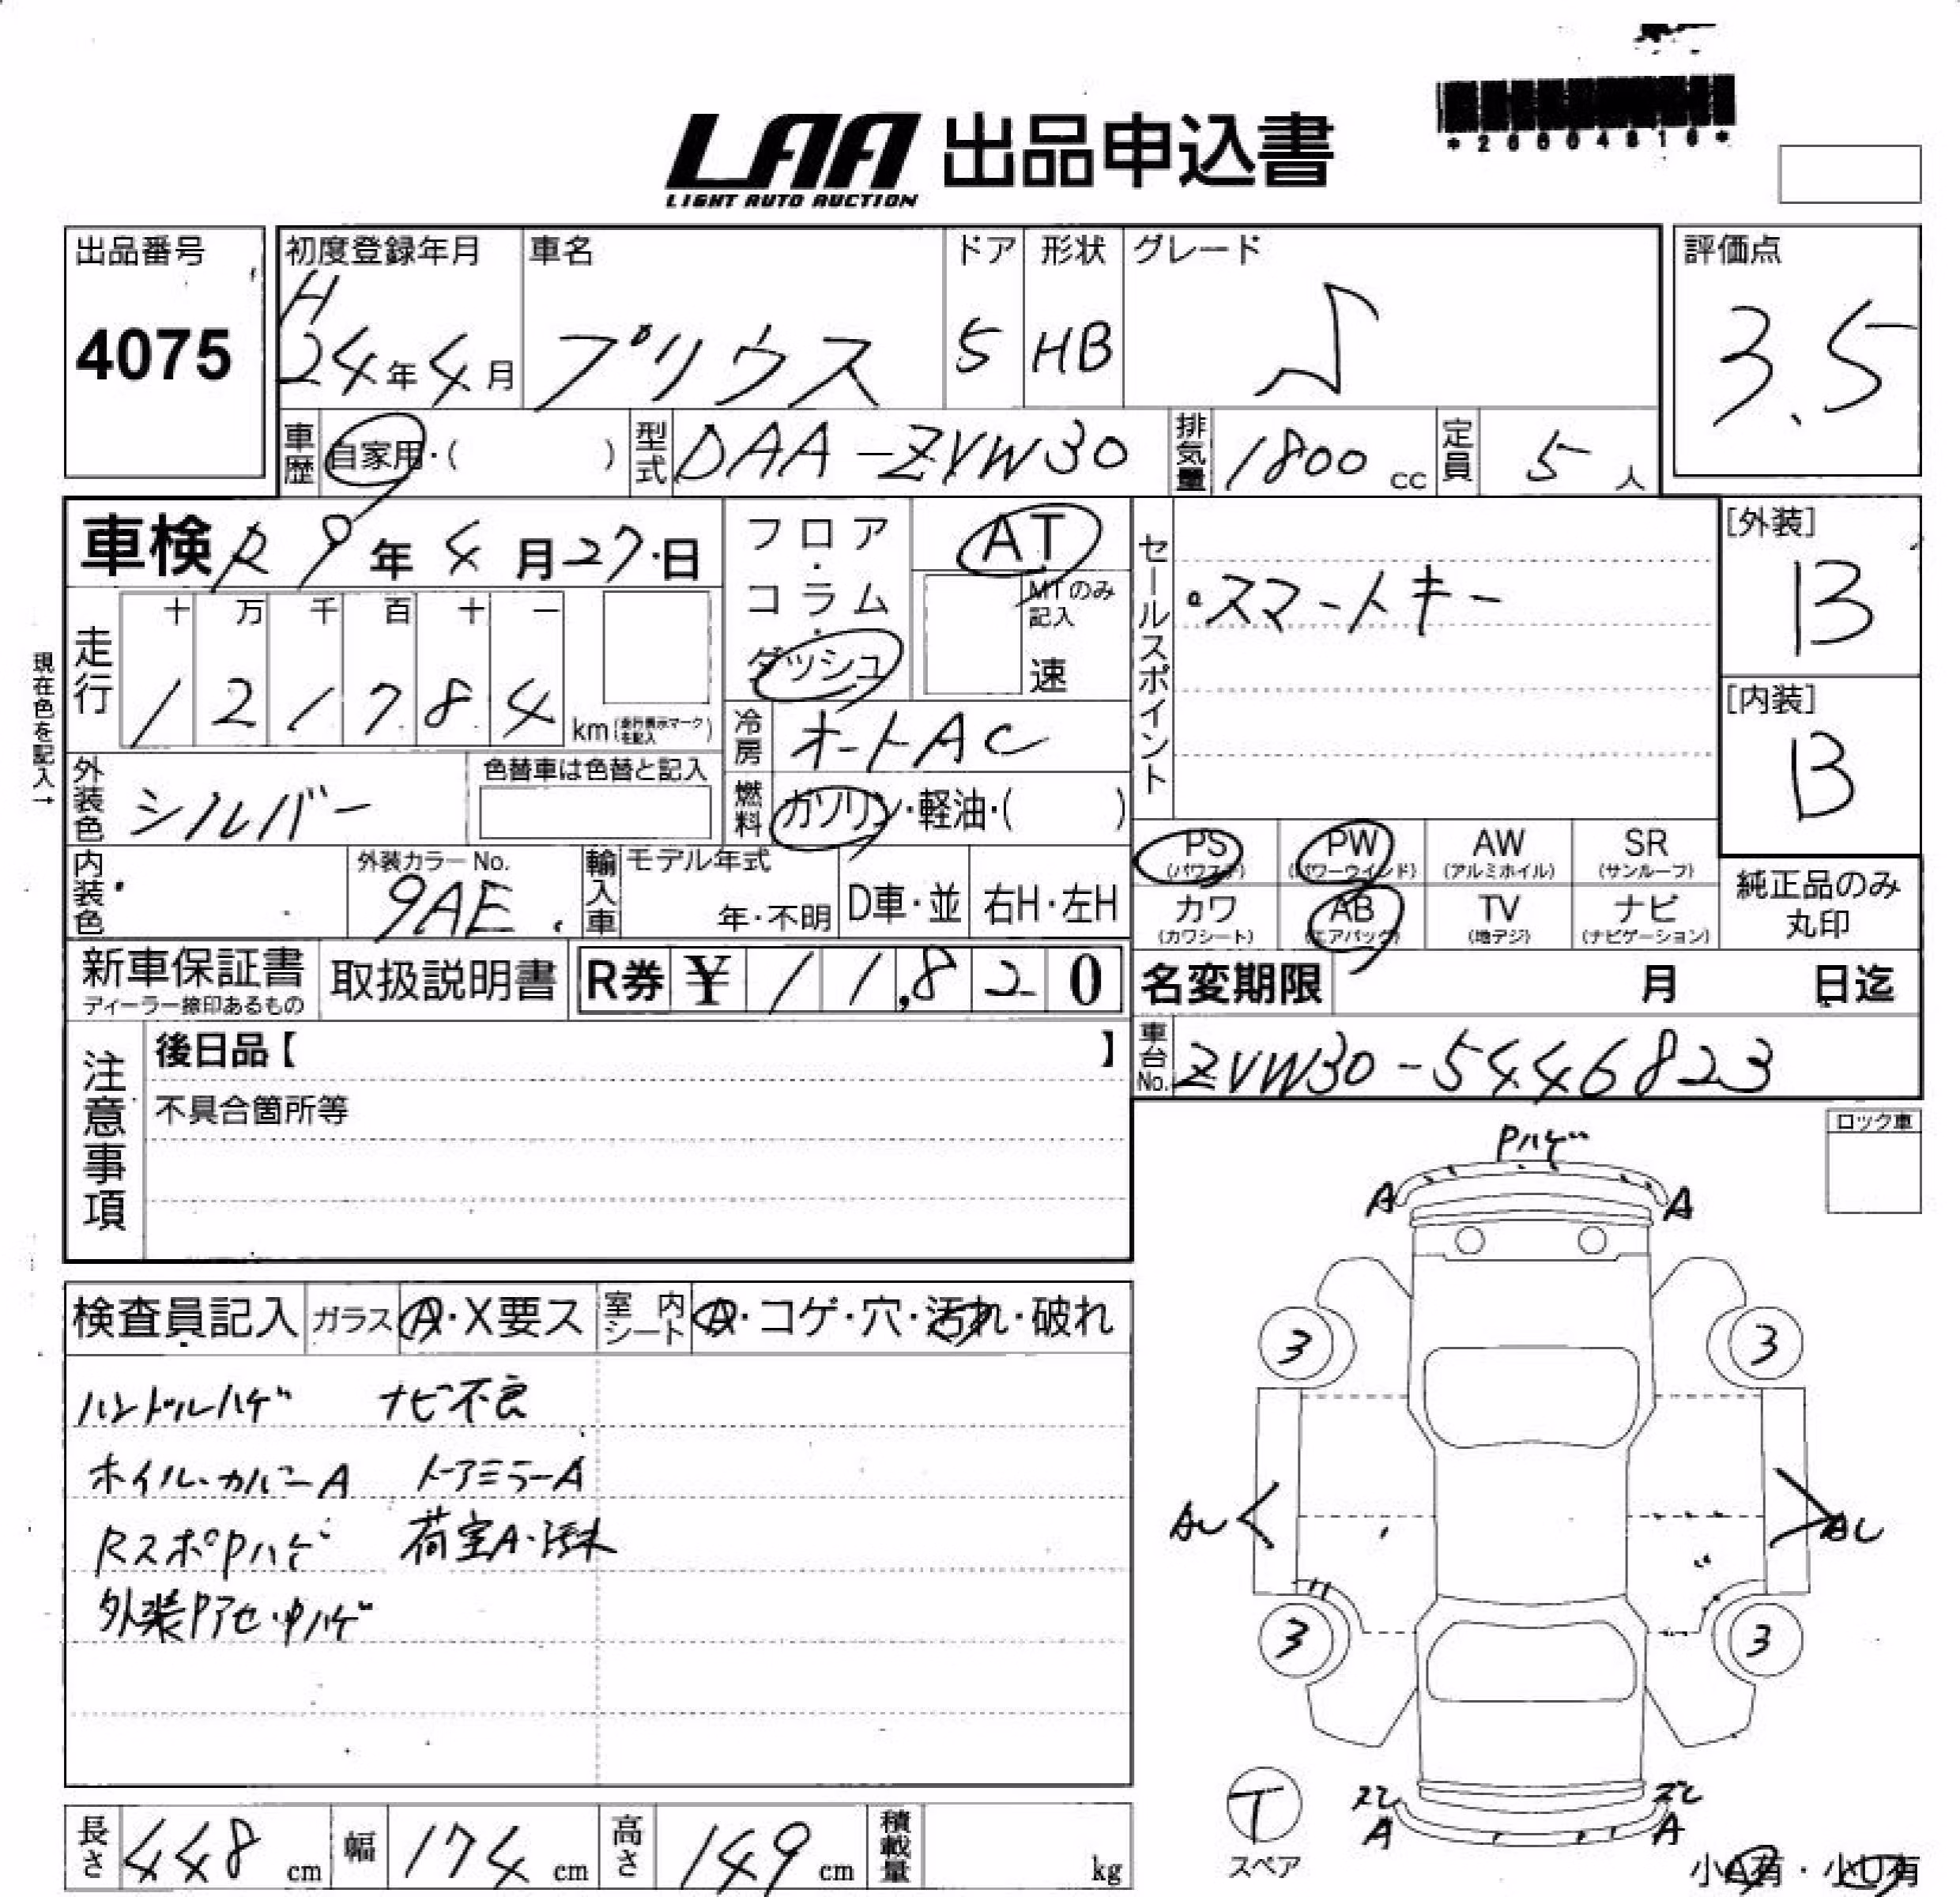 *26604816*
LAA 出品申込書
LIGHT AUTO AUCTION
出品番号
4075
初度登録年月
H
24年4月
車名
プリウス
ドア
5
形状
HB
グレード
S
評価点
3.5
車歴
自家用・( )
型式
DAA-ZVW30
排気量
1800 cc
定員
5 人
車検 R9年4月27日
フロア・コラム・ダッシュ
AT
MTのみ記入
速
セールスポイント
・スマートキー
[外装]
B
[内装]
B
現在色を記入→
走行
十 万 千 百 十 一
1 2 1 7 8 4
km (走行表示マークを記入)
冷房
オートAC
外装色
シルバー
色替車は色替と記入
燃料
ガソリン・軽油・( )
PS
(パワステ)
PW
(パワーウインド)
AW
(アルミホイル)
SR
(サンルーフ)
カワ
(カワシート)
AB
(エアバック)
TV
(地デジ)
ナビ
(ナビゲーション)
純正品のみ
丸印
内装色
外装カラーNo.
9AE
輸入車
モデル年式
年・不明
D車・並
右H・左H
新車保証書
ディーラー捺印あるもの
取扱説明書
R券 ¥ 11,820
名変期限 月 日迄
車台No.
ZVW30-5446823
注意事項
後日品【 】
不具合箇所等
ロック車
検査員記入
ガラス
A・X要ス
室内シート
A・コゲ・穴・汚れ・破れ
ハンドルハゲ ナビ不良
ホイルカバーA ドアミラーA
RスポPハゲ 荷室A・汚れ
外装Pアセ・中ハゲ
Pハゲ
A A
3 3
AU AU
3 3
ズレ ズレ
A A
T
スペア
小A有・小U有
長さ 448 cm
幅 174 cm
高さ 149 cm
積載量 kg